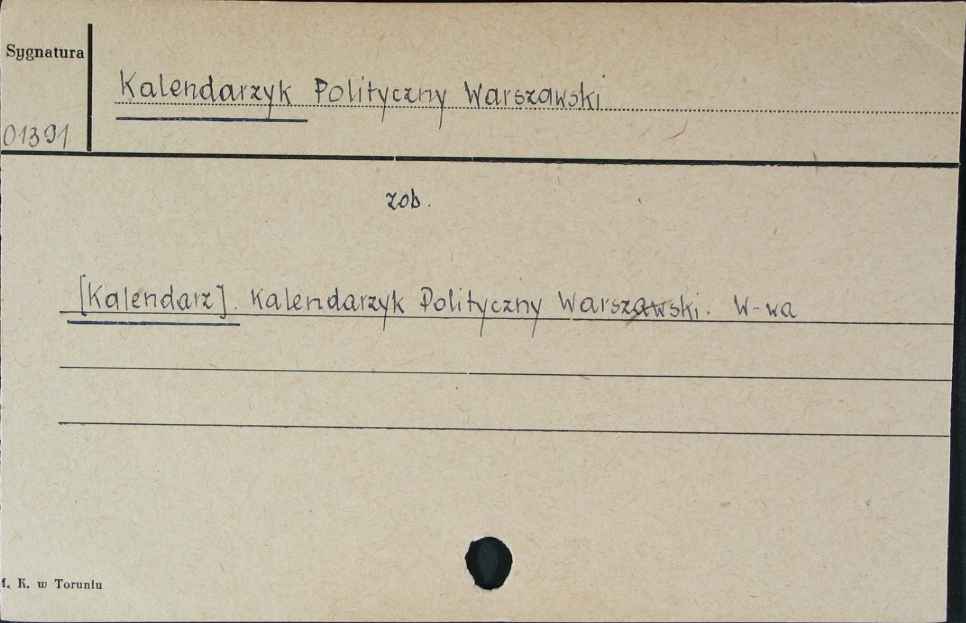 Sygnatura
Kalendarzyk Polityczny Warszawski
01391
zob.
[Kalendarz]. Kalendarzyk Polityczny Warszawski. W-wa
K. w Toruniu